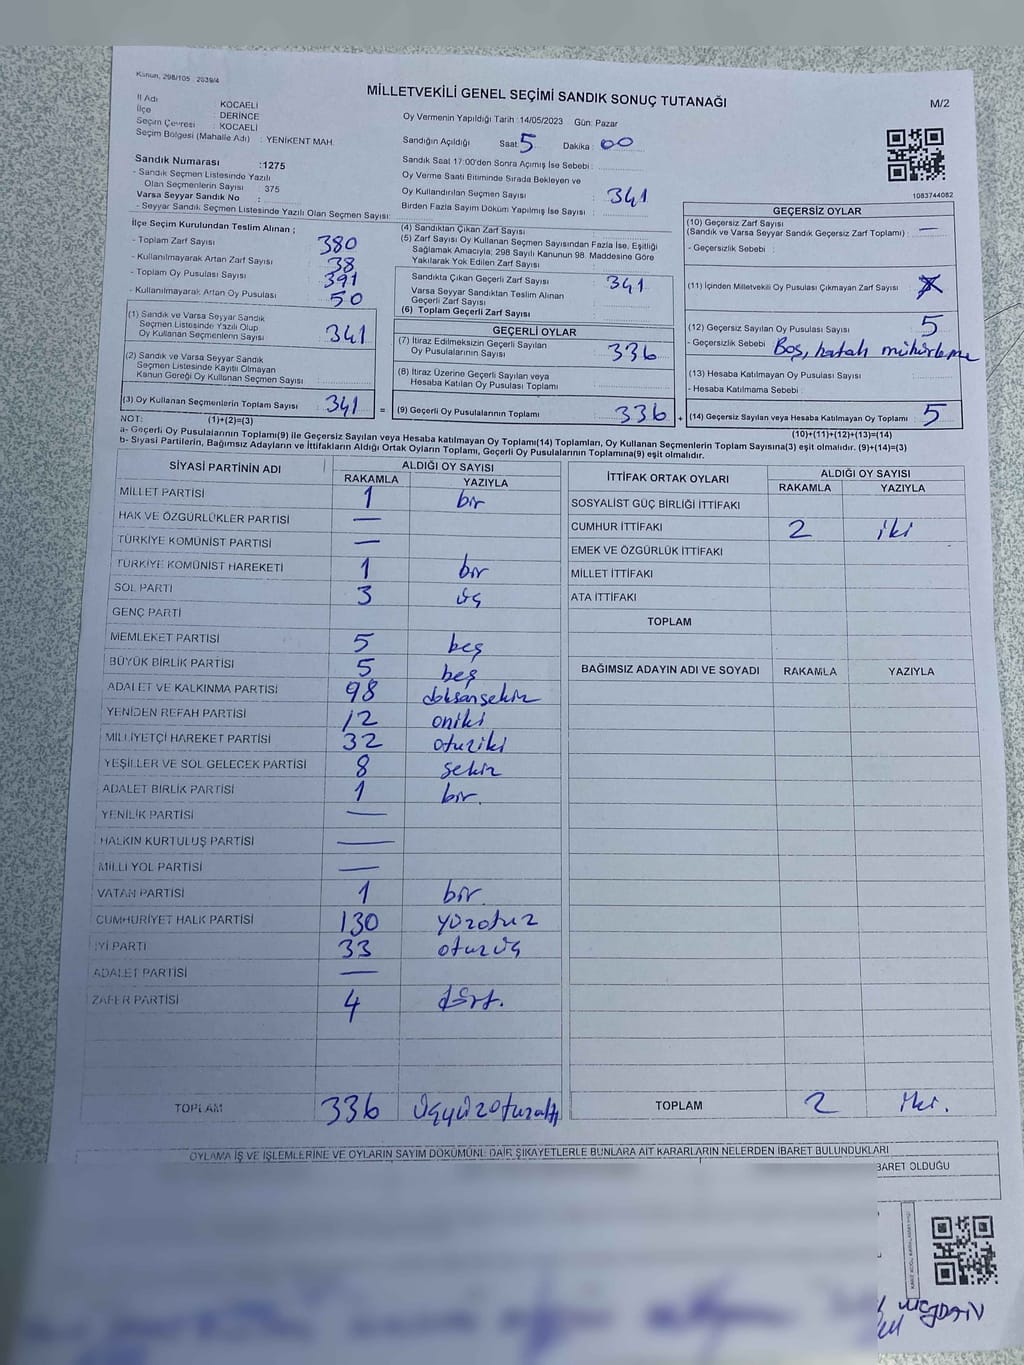 Kanun, 298/105 2839/4
MİLLETVEKİLİ GENEL SEÇİMİ SANDIK SONUÇ TUTANAĞI
M/2
İl Adı : KOCAELİ
İlçe : DERİNCE
Seçim Çevresi : KOCAELİ
Seçim Bölgesi (Mahalle Adı) : YENİKENT MAH.
Oy Vermenin Yapıldığı Tarih :14/05/2023 Gün: Pazar
Sandığın Açıldığı Saat: 5 Dakika: 00
Sandık Saat 17:00'den Sonra Açımış İse Sebebi :
Oy Verme Saati Bitiminde Sırada Bekleyen ve
Oy Kullandırılan Seçmen Sayısı : 341
Birden Fazla Sayım Döküm Yapılmış İse Sayısı :
1083744082
Sandık Numarası :1275
- Sandık Seçmen Listesinde Yazılı
Olan Seçmenlerin Sayısı : 375
Varsa Seyyar Sandık No :
- Seyyar Sandık Seçmen Listesinde Yazılı Olan Seçmen Sayısı:
İlçe Seçim Kurulundan Teslim Alınan ;
- Toplam Zarf Sayısı : 380
- Kullanılmayarak Artan Zarf Sayısı : 38
- Toplam Oy Pusulası Sayısı : 391
- Kullanılmayarak Artan Oy Pusulası : 50
(1) Sandık ve Varsa Seyyar Sandık
Seçmen Listesinde Yazılı Olup
Oy Kullanan Seçmenlerin Sayısı : 341
(2) Sandık ve Varsa Seyyar Sandık
Seçmen Listesinde Kayıtlı Olmayan
Kanun Gereği Oy Kullanan Seçmen Sayısı :
(3) Oy Kullanan Seçmenlerin Toplam Sayısı : 341
(1)+(2)=(3)
(4) Sandıktan Çıkan Zarf Sayısı :
(5) Zarf Sayısı Oy Kullanan Seçmen Sayısından Fazla İse, Eşitliği
Sağlamak Amacıyla, 298 Sayılı Kanunun 98. Maddesine Göre
Yakılarak Yok Edilen Zarf Sayısı :
Sandıkta Çıkan Geçerli Zarf Sayısı : 341
Varsa Seyyar Sandıktan Teslim Alınan
Geçerli Zarf Sayısı :
(6) Toplam Geçerli Zarf Sayısı :
GEÇERLİ OYLAR
(7) İtiraz Edilmeksizin Geçerli Sayılan
Oy Pusulalarının Sayısı : 336
(8) İtiraz Üzerine Geçerli Sayılan veya
Hesaba Katılan Oy Pusulası Toplamı :
= (9) Geçerli Oy Pusulalarının Toplamı : 336 +
GEÇERSİZ OYLAR
(10) Geçersiz Zarf Sayısı
(Sandık ve Varsa Seyyar Sandık Geçersiz Zarf Toplamı) : —
- Geçersizlik Sebebi :
(11) İçinden Milletvekili Oy Pusulası Çıkmayan Zarf Sayısı :
(12) Geçersiz Sayılan Oy Pusulası Sayısı : 5
- Geçersizlik Sebebi : Boş, hatalı mühürleme
(13) Hesaba Katılmayan Oy Pusulası Sayısı :
- Hesaba Katılmama Sebebi :
(14) Geçersiz Sayılan veya Hesaba Katılmayan Oy Toplamı : 5
(10)+(11)+(12)+(13)=(14)
NOT:
a- Geçerli Oy Pusulalarının Toplamı(9) ile Geçersiz Sayılan veya Hesaba katılmayan Oy Toplamı(14) Toplamları, Oy Kullanan Seçmenlerin Toplam Sayısına(3) eşit olmalıdır. (9)+(14)=(3)
b- Siyasi Partilerin, Bağımsız Adayların ve İttifakların Aldığı Ortak Oyların Toplamı, Geçerli Oy Pusulalarının Toplamına(9) eşit olmalıdır.
SİYASİ PARTİNİN ADI
ALDIĞI OY SAYISI
RAKAMLA YAZIYLA
MİLLET PARTİSİ 1 bir
HAK VE ÖZGÜRLÜKLER PARTİSİ —
TÜRKİYE KOMÜNİST PARTİSİ —
TÜRKİYE KOMÜNİST HAREKETİ 1 bir
SOL PARTİ 3 üç
GENÇ PARTİ
MEMLEKET PARTİSİ 5 beş
BÜYÜK BİRLİK PARTİSİ 5 beş
ADALET VE KALKINMA PARTİSİ 98 doksansekiz
YENİDEN REFAH PARTİSİ 12 oniki
MİLLİYETÇİ HAREKET PARTİSİ 32 otuziki
YEŞİLLER VE SOL GELECEK PARTİSİ 8 sekiz
ADALET BİRLİK PARTİSİ 1 bir.
YENİLİK PARTİSİ —
HALKIN KURTULUŞ PARTİSİ —
MİLLİ YOL PARTİSİ —
VATAN PARTİSİ 1 bir.
CUMHURİYET HALK PARTİSİ 130 yüzotuz
İYİ PARTİ 33 otuzüç
ADALET PARTİSİ —
ZAFER PARTİSİ 4 dört.
TOPLAM 336 üçyüzotuzaltı
İTTİFAK ORTAK OYLARI
ALDIĞI OY SAYISI
RAKAMLA YAZIYLA
SOSYALİST GÜÇ BİRLİĞİ İTTİFAKI
CUMHUR İTTİFAKI 2 iki
EMEK VE ÖZGÜRLÜK İTTİFAKI
MİLLET İTTİFAKI
ATA İTTİFAKI
TOPLAM
BAĞIMSIZ ADAYIN ADI VE SOYADI RAKAMLA YAZIYLA
TOPLAM 2 iki.
OYLAMA İŞ VE İŞLEMLERİNE VE OYLARIN SAYIM DÖKÜMÜNE DAİR ŞİKAYETLERLE BUNLARA AİT KARARLARIN NELERDEN İBARET BULUNDUKLARI
BARET OLDUĞU